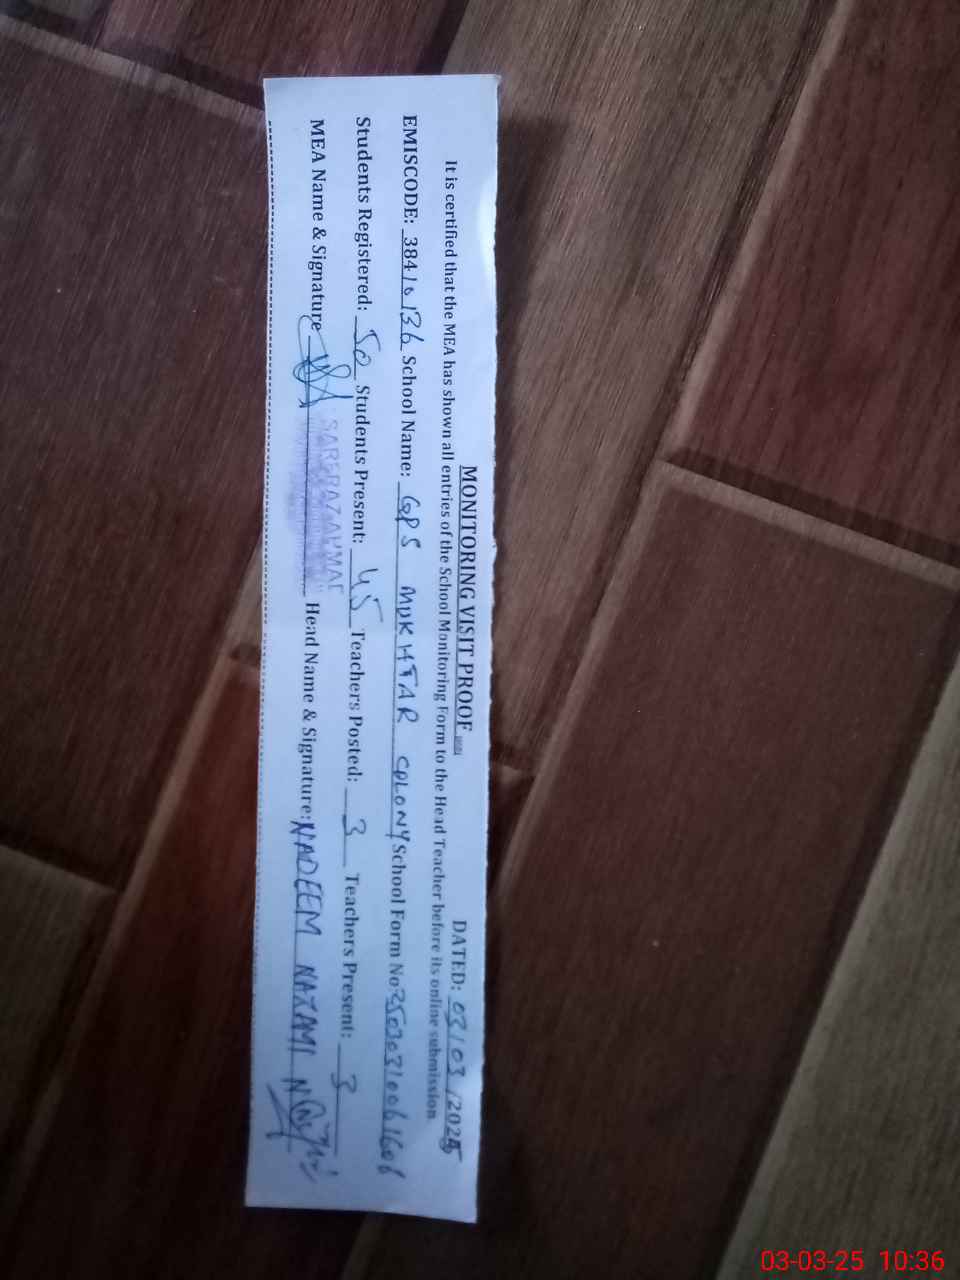 MONITORING VISIT PROOF DATED: 03/03/2025
It is certified that the MEA has shown all entries of the School Monitoring Form to the Head Teacher before its online submission
EMISCODE: 38410136 School Name: GPS MUKHTAR COLONY School Form No:
Students Registered: 50 Students Present: 45 Teachers Posted: 3 Teachers Present: 3
MEA Name & Signature SARFRAZ AHMAD Head Name & Signature: NADEEM NAZAMI
03-03-25 10:36